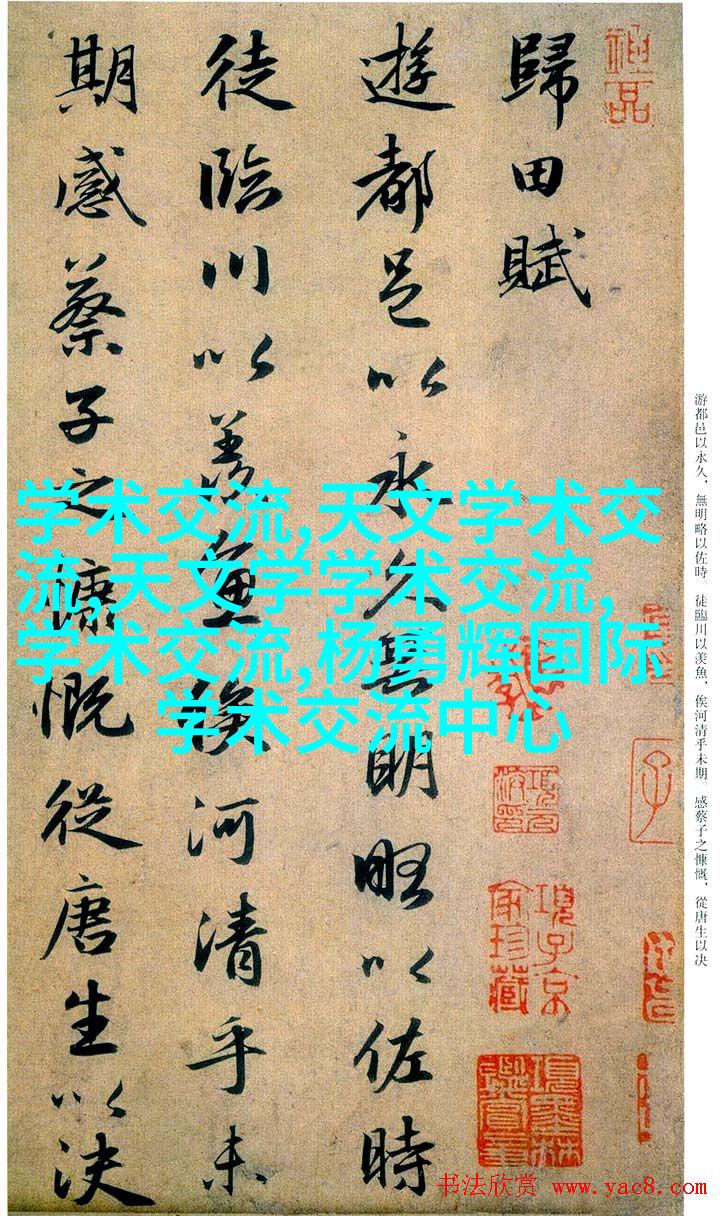 歸田賦
遊都邑以永久無明略以佐時
徒臨川以羨魚俟河清乎未
期感蔡子之慷慨從唐生以决
学术交流,天文学术交
流,天文学学术交流,
学术交流,杨勇辉国际
学术交流中心
游都邑以永久，無明略以佐時。徒臨川以羨魚，俟河清乎未期。感蔡子之慷慨，從唐生以决
項子京
家珍藏
書法欣赏 www.yac8.com